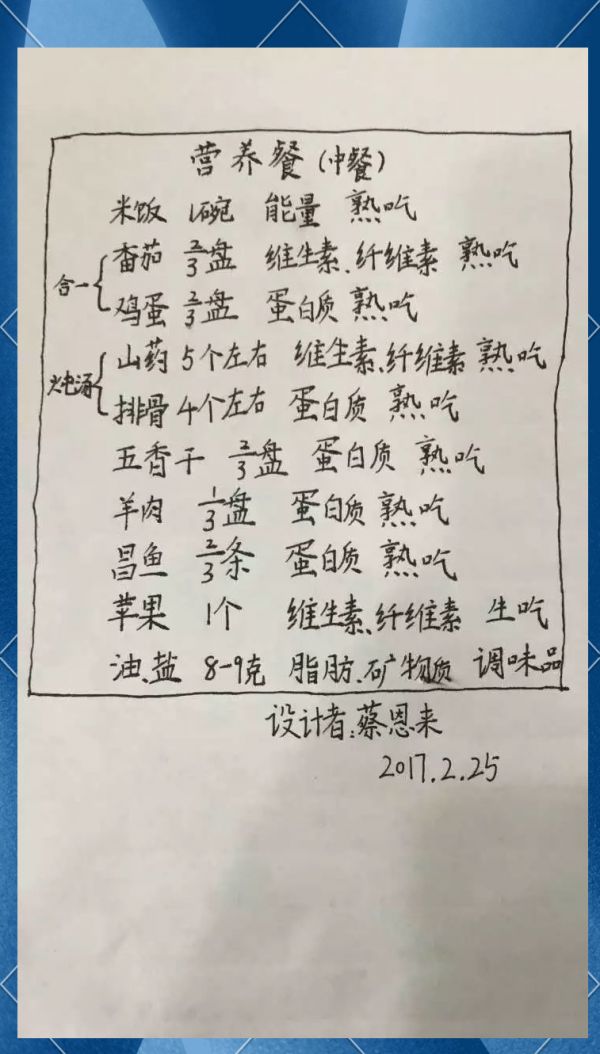 营养餐(中餐)
米饭 1碗 能量 熟吃
合一{ 番茄 2/3盘 维生素、纤维素 熟吃
鸡蛋 2/3盘 蛋白质 熟吃
炖汤{ 山药 5个左右 维生素、纤维素 熟吃
排骨 4个左右 蛋白质 熟吃
五香干 2/3盘 蛋白质 熟吃
羊肉 1/3盘 蛋白质 熟吃
昌鱼 2/3条 蛋白质 熟吃
苹果 1个 维生素、纤维素 生吃
油、盐 8-9克 脂肪、矿物质 调味品
设计者:蔡恩来
2017.2.25